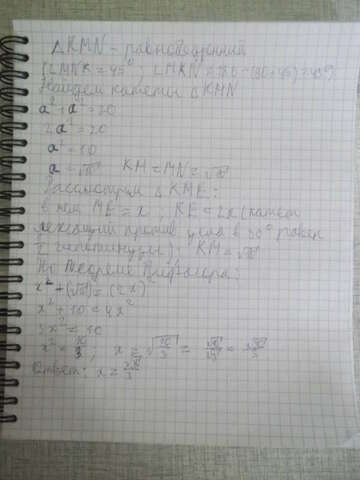 △KMN – равнобедренный
(∠MNK = 45°, ∠MKN = 180 – (90+45) = 45°)
Найдем катеты △KMN
a² + a² = 20
2a² = 20
a² = 10
a = √10 KM = MN = √10
Рассмотрим △KME:
В нем ME = x, KE = 2x (катет
лежащий против угла в 30° равен
гипотенузы), KM = √10
По теореме Пифагора:
x² + (√10)² = (2x)²
x² + 10 = 4x²
3x² = 10
x² = 10/3, x = √10/3 = √10/√3 = √30/3
Ответ: x =